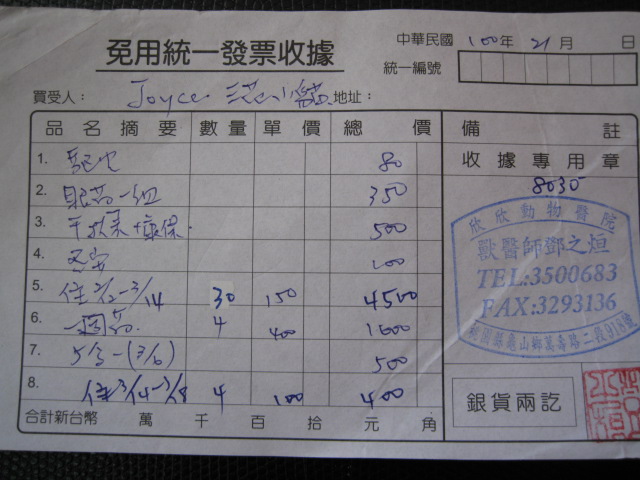 免用統一發票收據
中華民國 100年 21月 日
統一編號
買受人： Joyce 小貓 地址：
品名摘要 數量 單價 總價 備註
收據專用章
1. 驅虫 80
8035
2. 眼藥一組 350
3. 干扰素+ 500
4. 100
5. 住 2/12-3/14 30 150 4500
6. 一個 4 400 1600
7. 5合一(3/6) 500
8. 住 3/14-3/18 4 100 400
合計新台幣 萬 千 百 拾 元 角
欣欣動物醫院
獸醫師鄧之烜
TEL:3500683
FAX:3293136
桃園縣龜山鄉萬壽路二段918號
銀貨兩訖